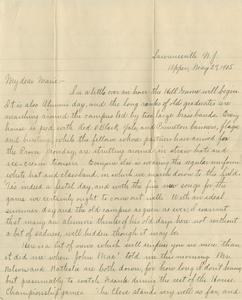 Lawrenceville N.J.
Upper, May 27, 1905
My dear Marie:-
In a little over an hour the Hill Game will begin.
It is also Alumni day, and the long ranks of old graduates are
marching around the campus led by two large brass bands. Every
house is with Red & Black, Yale and Princeton banners, flags
and bunting, while the fellows whose partners have arrived for
the Prom Monday, are strutting around in straw hats and
ice-cream trousers. Everyone else is wearing the regular uniform
white hat and class band, in which we march down to the field.
'Tis indeed a festal day, and with the five new songs for the
game we certainly ought to come out well. With an ideal
summer day and the old campus as green as ever, I warrant
that many an alumnus thinks of his old days here not without a
bit of sadness, well hidden though it may be.
Here is a bit of news which will surprise you no more than
it did me when John Mac told me this morning. Mr.
Nelson and Nathalie are both down, for how long I don't know
but presumably to watch beside the rest of the House
Championship games. The Cleve stands very well so far, and